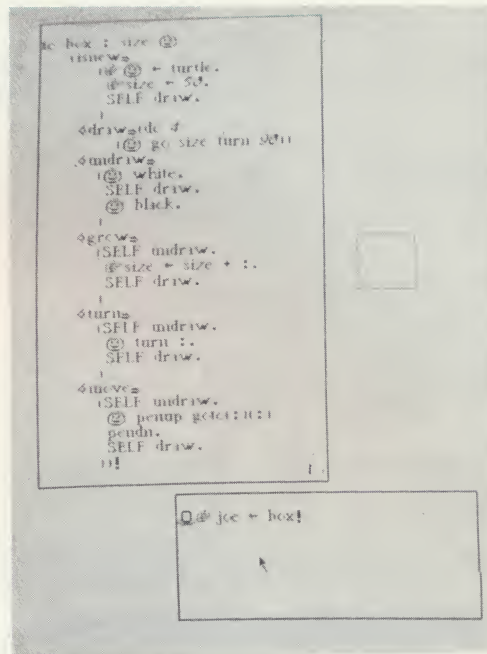 to box : size ☺
(isnew⇒
(☞ ☺ ← turtle.
☞ size ← 50.
SELF draw.
)
◁draw⇒(do 4
(☺ go size turn 90))
◁undraw⇒
(☺ white.
SELF draw.
☺ black.
)
◁grow⇒
(SELF undraw.
☞ size ← size + :.
SELF draw.
)
◁turn⇒
(SELF undraw.
☺ turn :.
SELF draw.
)
◁move⇒
(SELF undraw.
☺ penup goto(:)(:)
pendn.
SELF draw.
))!
☞ joe ← box!